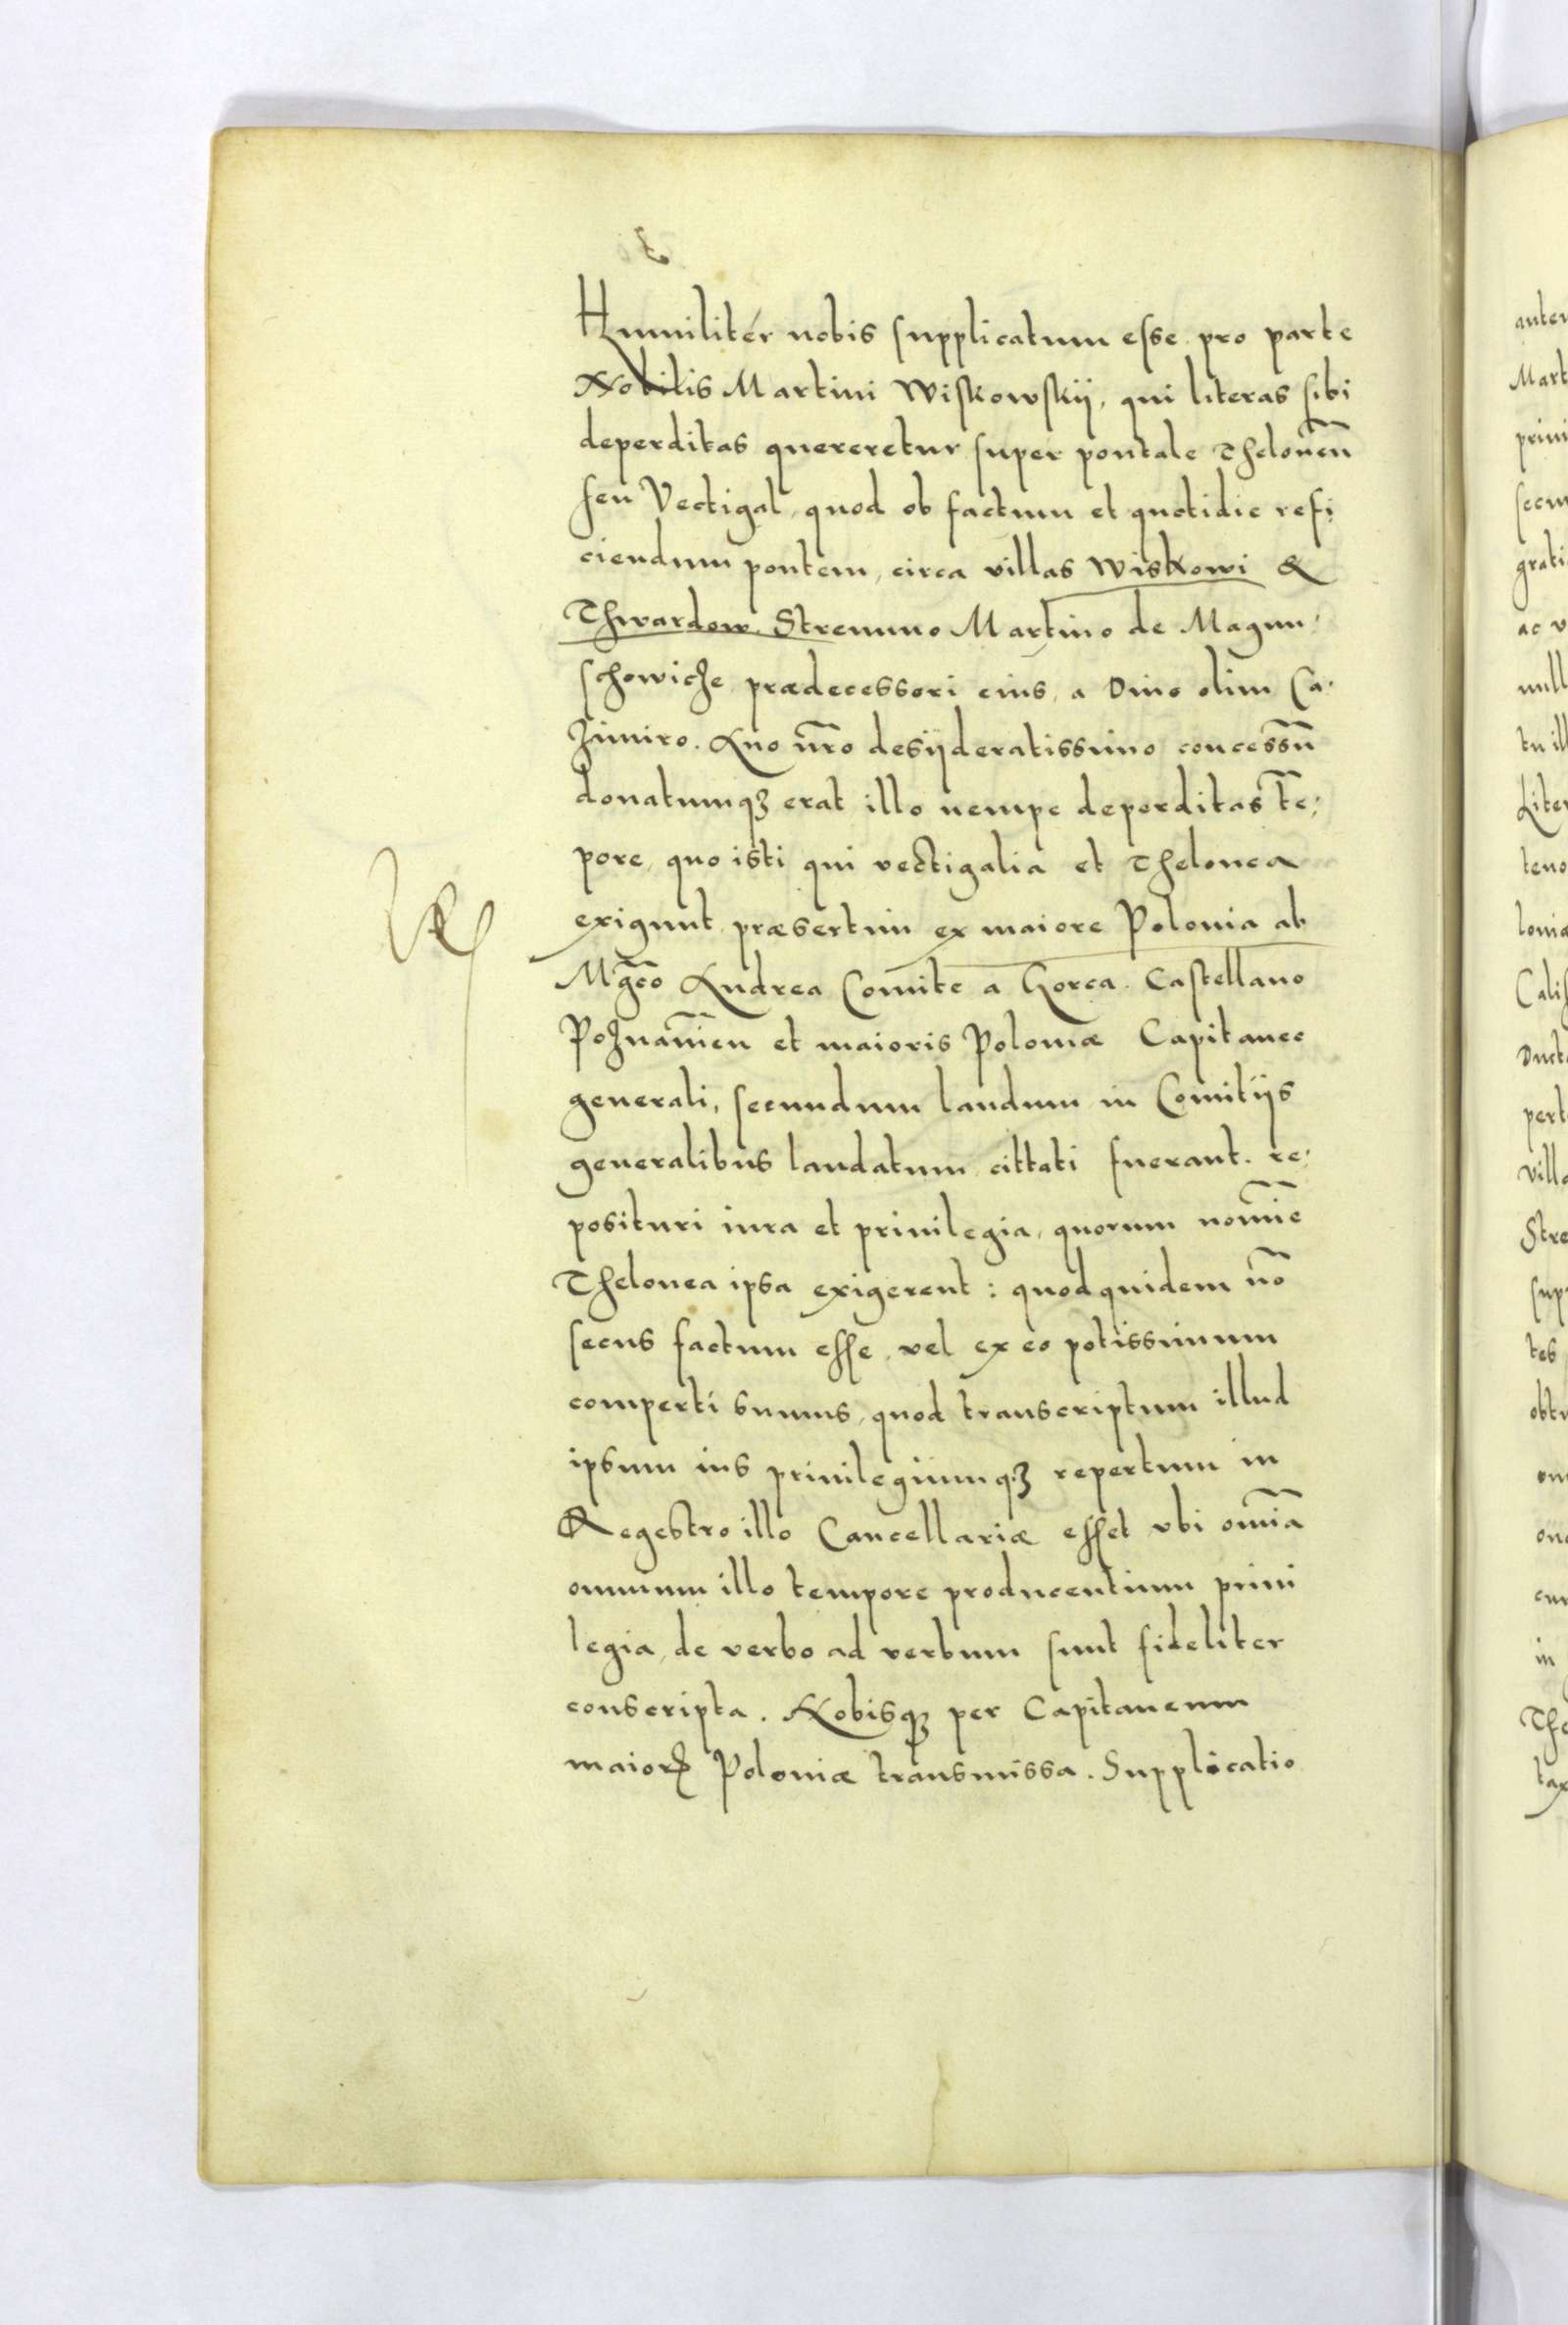 Humilitér nobis supplicatum esse pro parte
Nobilis Martini Wiskowskij, qui literas sibi
deperditas quereretur super pontale Theloneũ
seu Vectigal, quod ob factum et quotidie refi
ciendum pontem, circa villas Wiskowi &
Thwardow. Strenuuo Martino de Magnu
schowicze prædecessori eius, a Diuo olim Ca
zimiro. Auo nr̃o desijderatissimo concessũ
donatumqȝ erat illo nempe deperditas tẽ
pore, quo isti qui vectigalia et Thelonea
exigunt præsertim ex maiore Polonia ab
Mgc̃o Andrea Comite a Gorca. Castellano
Poznanieñ et maioris Poloniæ Capitaneo
generali, secundum laudum in Comitijs
generalibus laudatum cittati fuerant. re
posituri iura et priuilegia, quorum nomĩe
Thelonea ipsa exigerent: quod quidem nõ
secus factum esse, vel ex eo potissimum
comperti sumus, quod transcriptum illud
ipsum ius priuilegiumqȝ repertum in
Regestro illo Cancellariæ esset vbi omĩa
omnium illo tempore producentium priui
legia, de verbo ad verbum sunt fideliter
conscripta. Nobisqȝ per Capitaneum
maioꝝ Poloniæ transmissa. Supplicatio